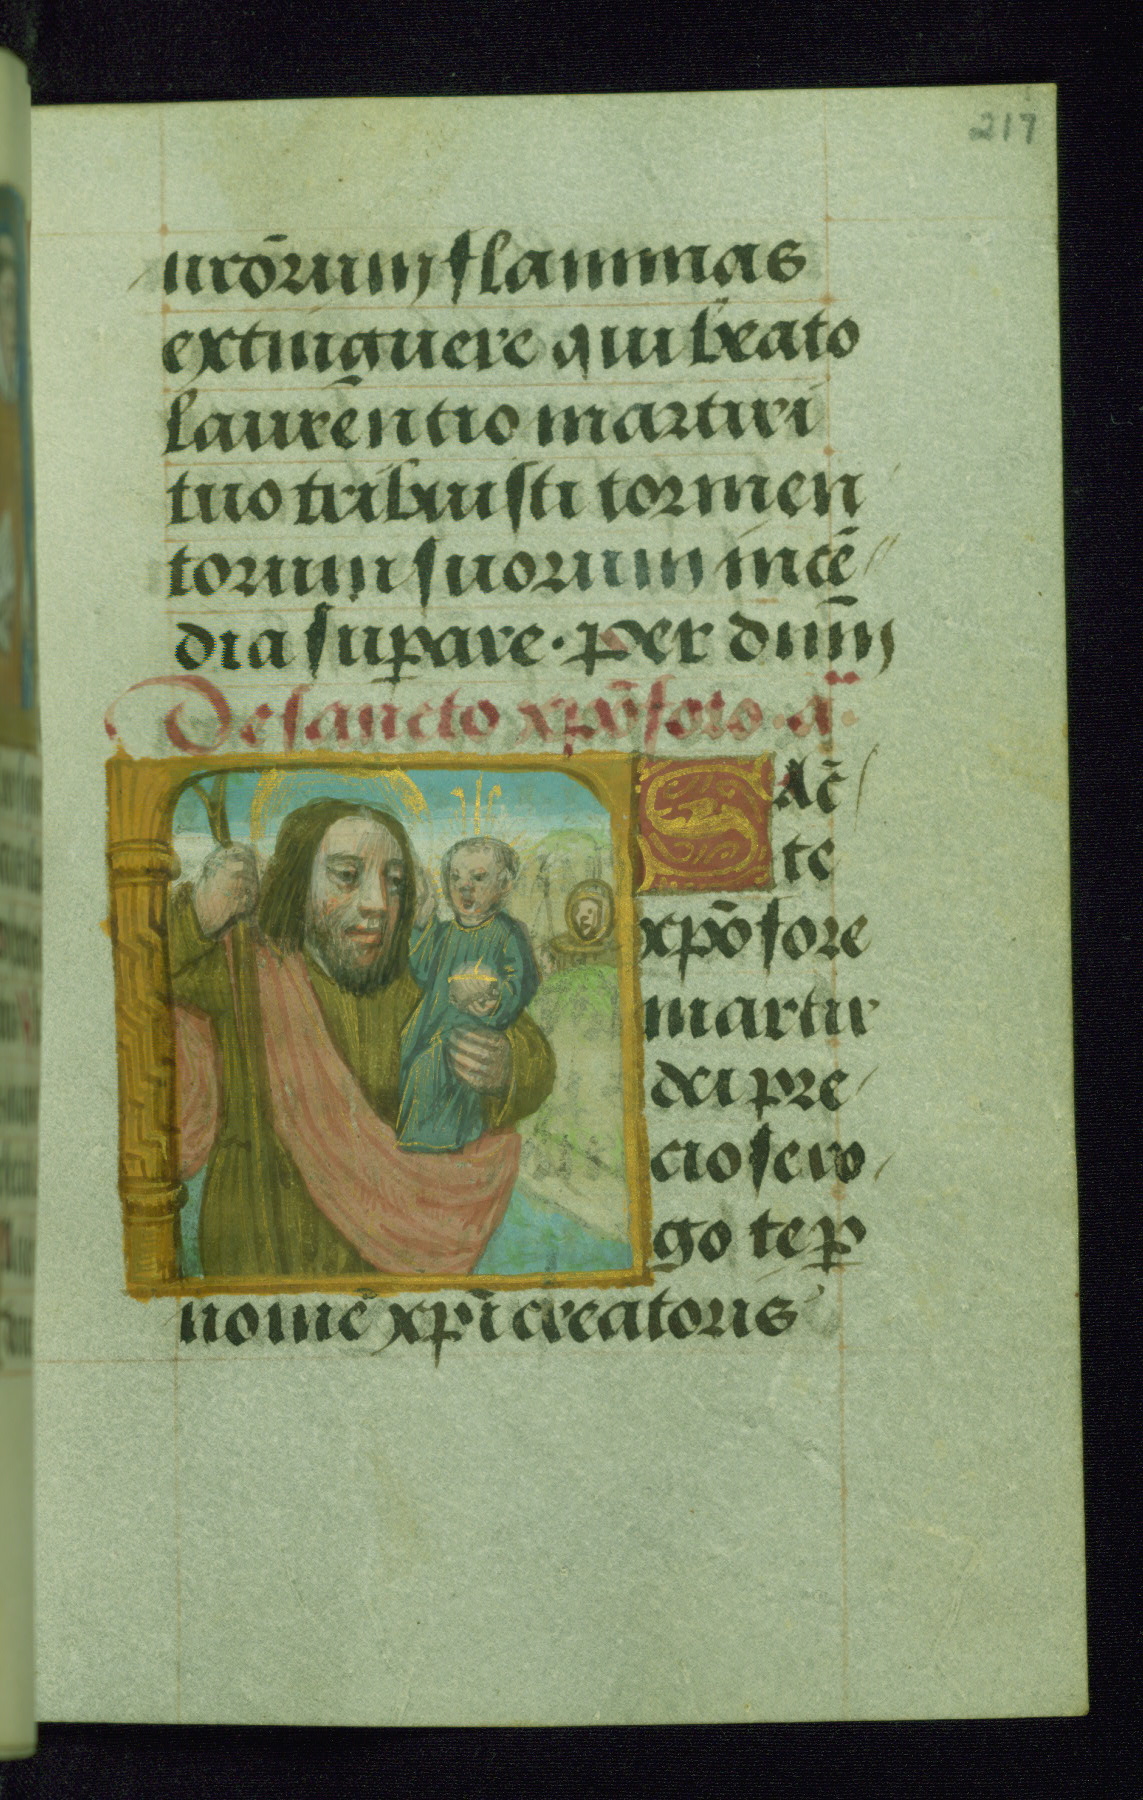 217
uiciorum flammas
extinguere qui beato
laurētio martiri
tuo tribuisti tormen
torum suorum incē
dia supare. per dūm
De sancto xpōforo. añ
Sācte
xpōfore
martir
dei pre
ciose ro
go te p
nomē xpī creatoris